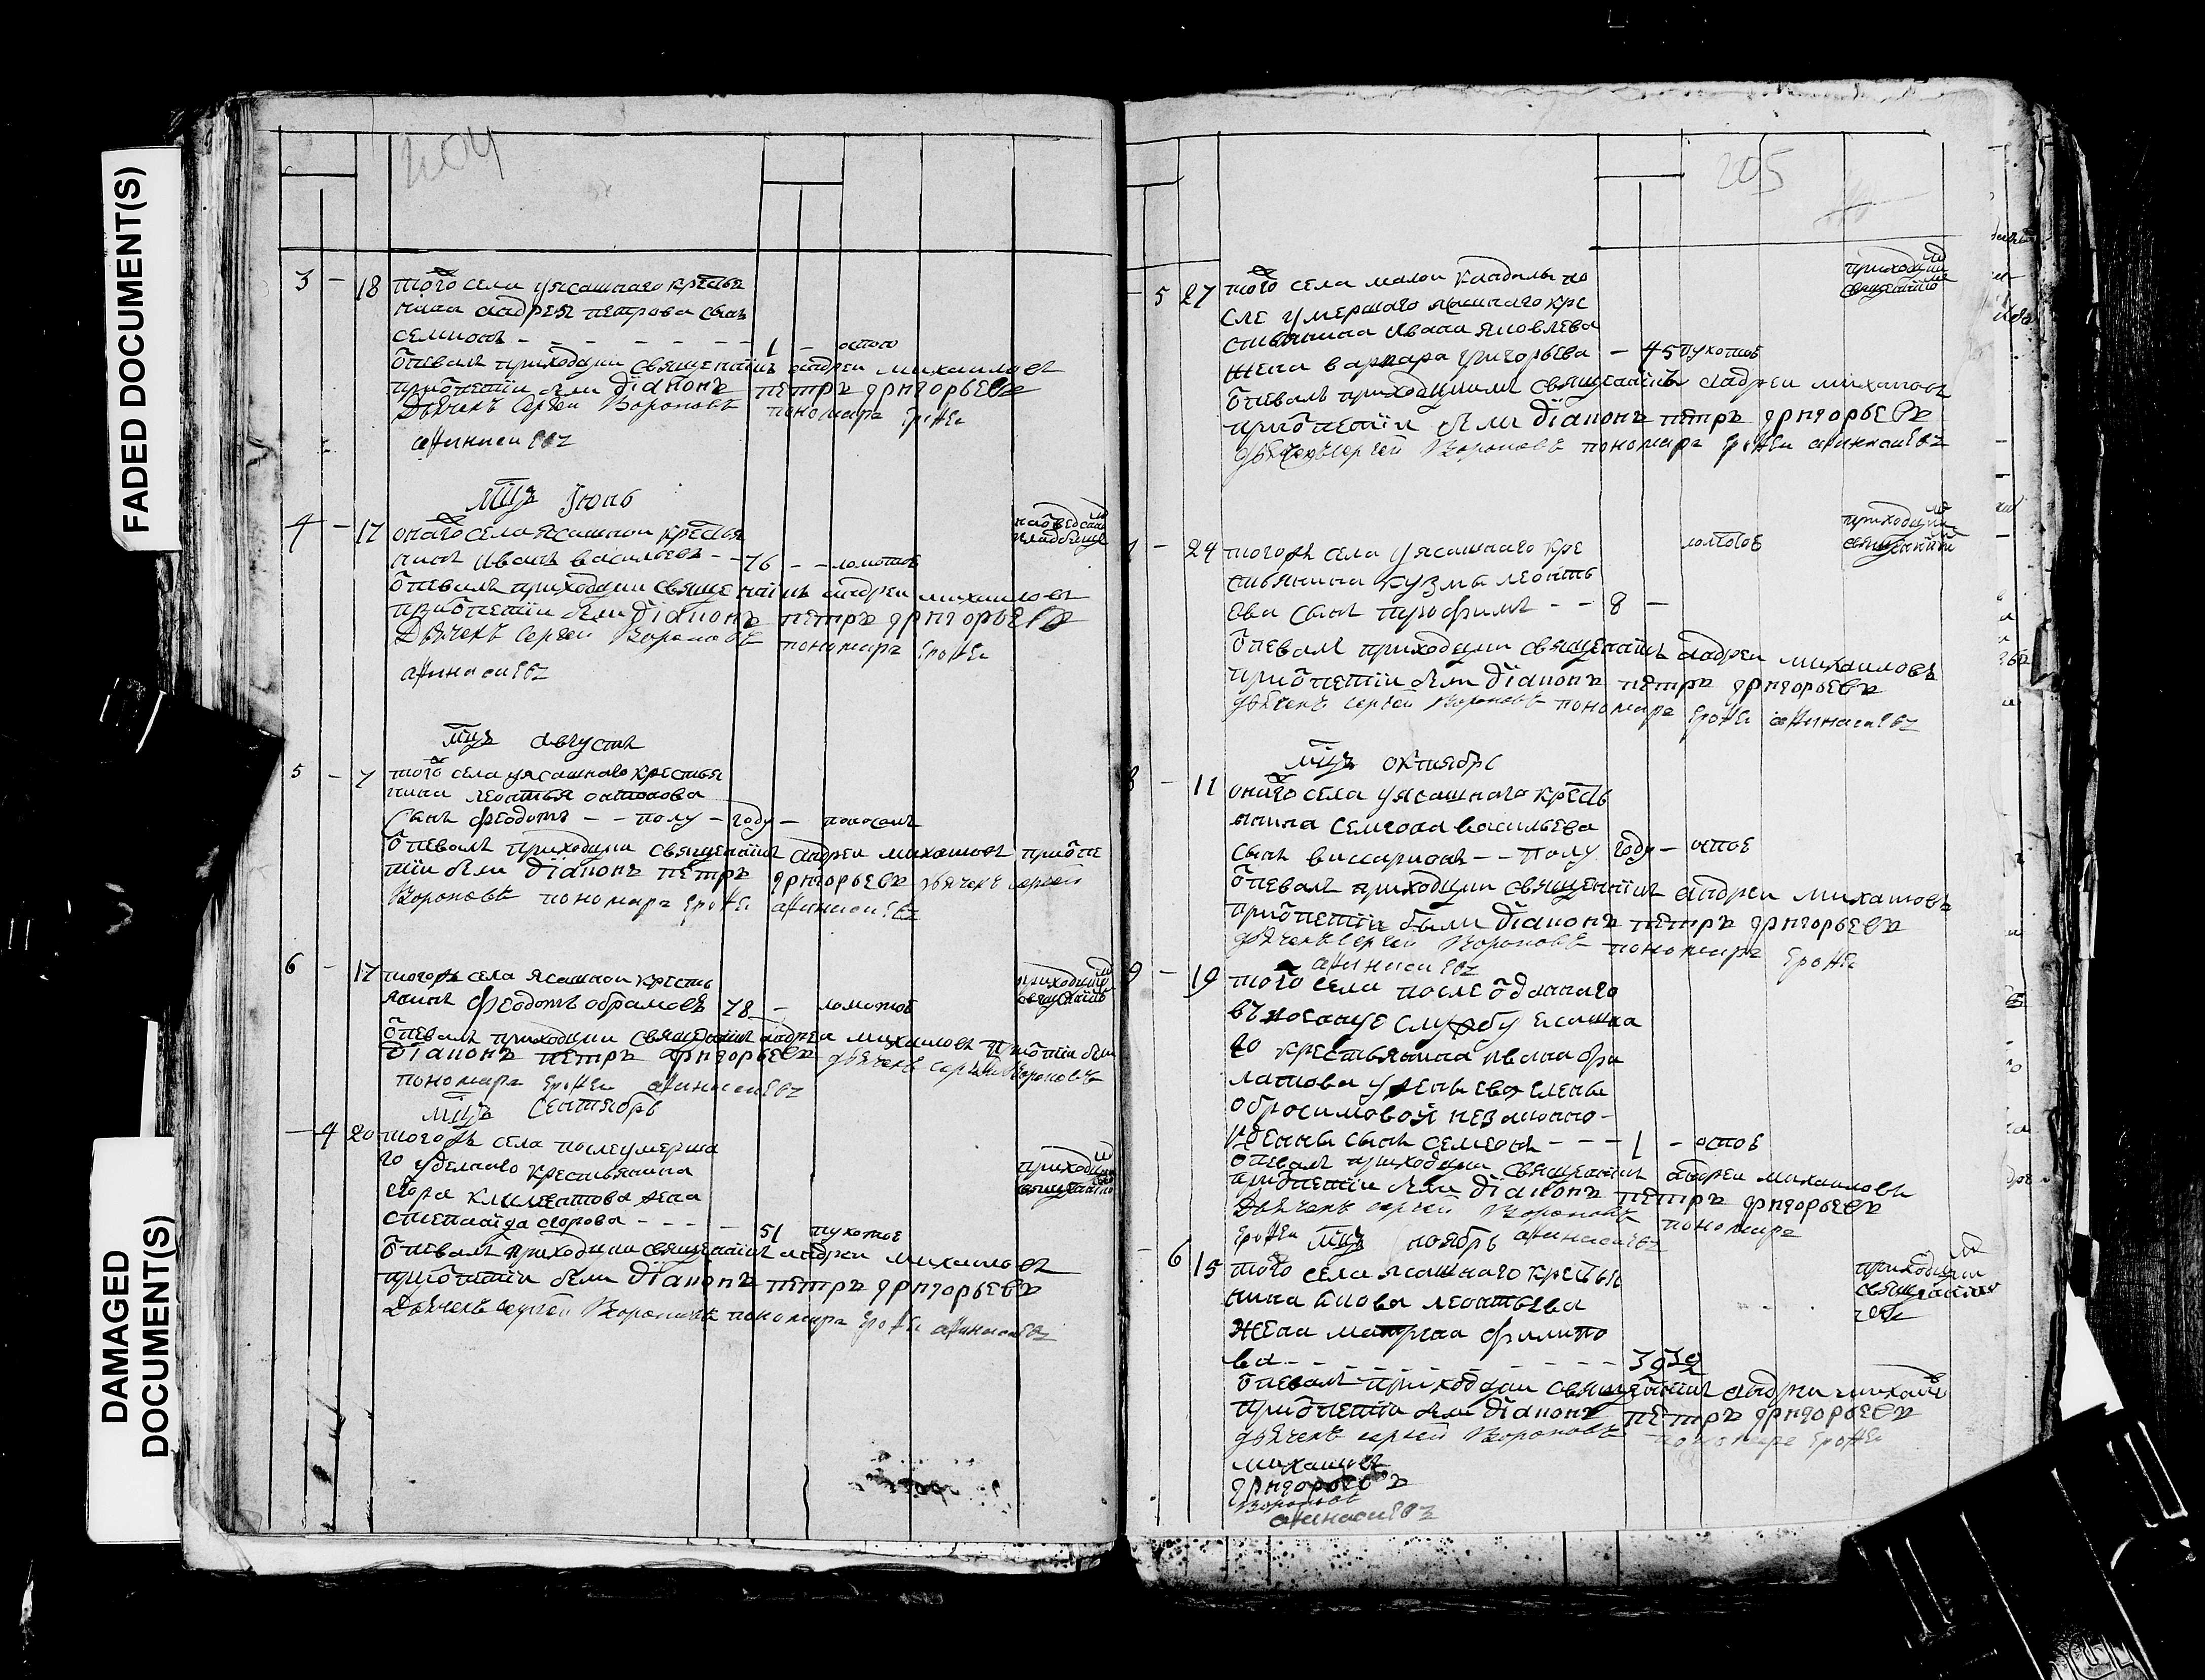 FADED DOCUMENT(S)
DAMAGED
DOCUMENT(S)
204
3 - 18 того села у ясашнаго крестья
нина андрея петрова сынъ
семионъ - - - - - - 1 - оспою
опевалъ приходции священникъ андреи михаиловъ
приопетіи были діаконъ петръ григорьевъ
Дьячекъ Сергеи Вороновъ пономарь
афинасиевъ
мцъ Iюль
4 - 17 онаго села ясашнои крестья
нинъ иванъ васильевъ - - 76 - - ломотое
опевалъ приходции священникъ андреи михаиловъ
приопетіи были діаконъ петръ григорьевъ
Дьячекъ Сергеи Вороновъ пономарь
афинасиевъ
мцъ августъ
5 - 7 того села у ясашнаго крестья
нина леонтья
сынъ феодотъ - - полу - году - поносомъ
опевалъ приходции священникъ андреи михаиловъ приопе
тіи были діаконъ петръ григорьевъ дьячекъ сергеи
Вороновъ пономарь афинасиевъ
6 - 17 тогожъ села ясашнои кресть
янинъ феодотъ обрамовъ 78 - ломотое
приходции
священникъ
опевалъ приходции священникъ андреи михаиловъ приопетіи были
діаконъ петръ григорьевъ дьячекъ сергеи Вороновъ
пономарь афинасиевъ
мцъ Сентябрь
- 4 20 тогожъ села после умерша
го уделнаго крестьянина
егора климентова жена
степанида егорова - - - - 51 сухотое
приходции
опевалъ приходции священникъ андреи михаиловъ
приопетіи были діаконъ петръ григорьевъ
Дьячекъ сергеи Вороновъ пономарь афинасиевъ
205
- 5 27 того села малои кандалы по
сле умершаго ясашнаго кре
стьянина ивана яковлева
жена варвара григорьева - 45 сухотое
приходции
священникъ
опевалъ приходции священникъ андреи михаиловъ
приопетіи были діаконъ петръ григорьевъ
дьячекъ сергеи Вороновъ пономарь афинасиевъ
- 24 тогожъ села у ясашнаго кре
стьянина кузмы леонть
ева сынъ трофимъ - - 8 -
приходции
опевалъ приходции священникъ андреи михаиловъ
приопетіи были діаконъ петръ григорьевъ
дьячекъ сергеи Вороновъ пономарь афинасиевъ
мцъ октябрь
8 - 11 онаго села у ясашнаго кресть
янина семиона васильева
сынъ виссарионъ - - полу году - оспое
опевалъ приходции священникъ андреи михаиловъ
приопетіи были діаконъ петръ григорьевъ
дьячекъ сергеи Вороновъ пономарь
афинасиевъ
9 - 19 того села после отданаго
въ военную службу ясашна
го крестьянина ивана
у жены ево елены
незаконно
рожденны сынъ семеонъ - - - 1 - оспое
опевалъ приходции священникъ андреи михаиловъ
приопетіи были діаконъ петръ григорьевъ
Дьячекъ сергеи Вороновъ пономарь
мцъ ноябрь афинасиевъ
- 6 15 того села ясашнаго крестья
нина леонтьева
жена матрена филипо
ва - - - - - - - 39
приходции
опевалъ приходции священникъ андреи михаило
приопетіи были діаконъ петръ григорьевъ
дьячекъ сергеи Вороновъ пономарь
михаиловъ
григорьевъ
Вороновъ
афинасиевъ